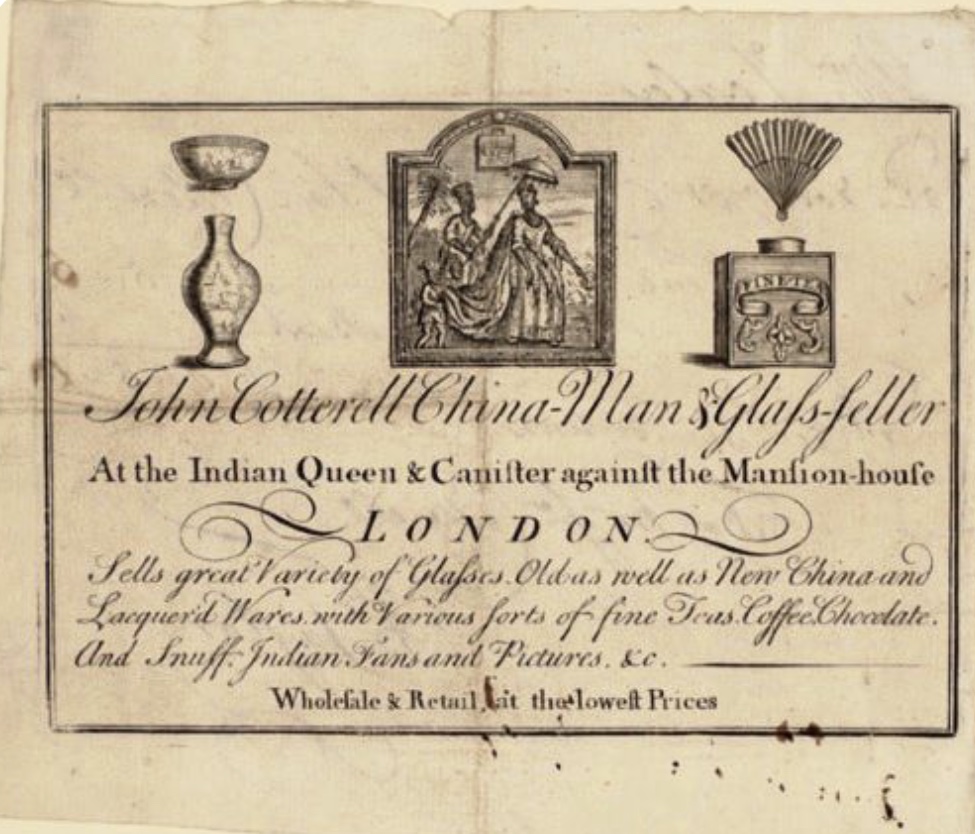 FINE TEA
John Cotterell China-Man & Glaſs-ſeller
At the Indian Queen & Caniſter againſt the Manſion-houſe
LONDON.
Sells great Variety of Glaſses. Old as well as New China and
Lacquer'd Wares. with Various ſorts of fine Teas. Coffee. Chocolate.
And Snuff. Indian Fans and Pictures. &c.
Wholeſale & Retail, at the loweſt Prices